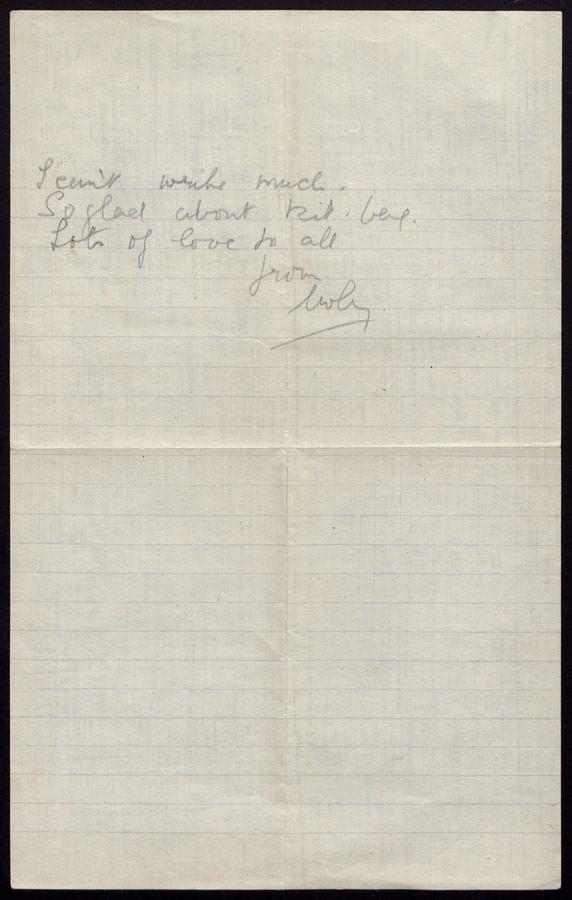 I can't write much.
So glad about kit. bag.
Lots of love to all
from